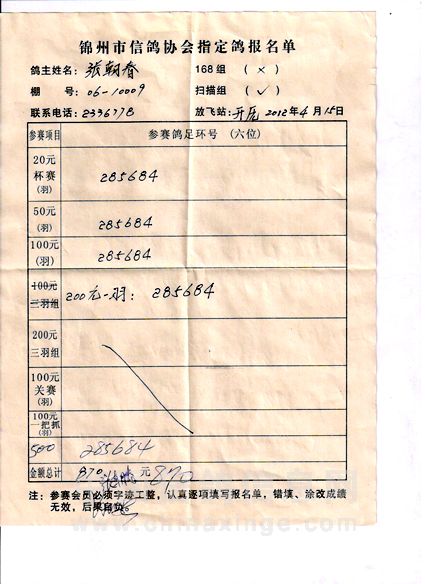 锦州市信鸽协会指定鸽报名单
鸽主姓名：张朝春 168组 （×）
棚 号：06-10009 扫描组 （✓）
联系电话：2336778 放飞站：开厄 2012年4月15日
参赛项目 参赛鸽足环号（六位）
20元
杯赛
(羽) 285684
50元
(羽) 285684
100元
(羽) 285684
100元
三羽组 200元一羽：285684
200元
三羽组
100元
关赛
(羽)
100元
一把抓
(羽)
500 285684
金额总计 870 元 870
注：参赛会员必须字迹工整，认真逐项填写报名单，错填、涂改成绩
无效，后果自负。
www.chinaxinge.com